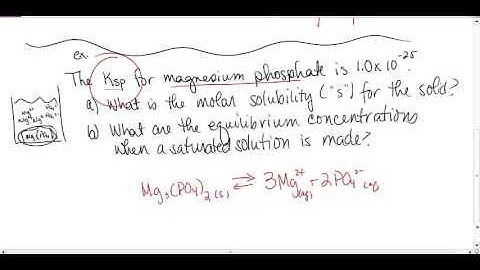 ex.
The Ksp for magnesium phosphate is 1.0x10⁻²⁵.
a) What is the molar solubility ("s") for the solid?
b) What are the equilibrium concentrations
when a saturated solution is made?
Mg₃(PO₄)₂(s) ⇌ 3Mg²⁺(aq) + 2PO₄³⁻(aq)